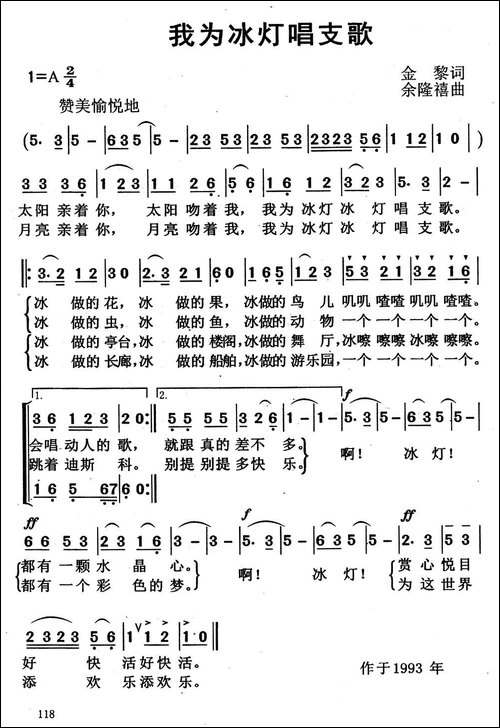 我为冰灯唱支歌
1=A 2/4
金 黎词
余隆禧曲
赞美愉悦地
(5. 3 | 5 - | 6 3 5 | 5 - | 2 3 5 3 | 2 3 5 3 | 2 3 2 3 5 6 | 1 1 2 | 1 0)
3 3 3 6 | 1 2 3 | 1 1 2 6 | 5 6 | 1 3 2 1 6 | 1 2 3 | 5. 3 | 2 - |
太阳亲着你, 太阳吻着我, 我为冰灯冰 灯唱支歌。
月亮亲着你, 月亮吻着我, 我为冰灯冰 灯唱支歌。
‖: 3. 2 | 1 1 2 | 3 0 | 2. 3 | 2 1 6 | 6 0 | 1 6 5 | 1 2 3 | 5 3 2 1 | 3 2 1 6 |
冰 做的花, 冰 做的果, 冰做的鸟 儿 叽叽喳喳 叽叽喳喳。
冰 做的虫, 冰 做的鱼, 冰做的动 物 一个一个 一个一个。
冰 做的亭台, 冰 做的楼阁, 冰做的舞 厅, 冰嚓嚓嚓 冰嚓嚓嚓。
冰 做的长廊, 冰 做的船舶, 冰做的游乐园, 一个一个 一个一个。
1. 2. f
3 6 | 1 2 3 | 2 0 :‖ 5 5 | 5 5 | 3 2 6 | 1 - | 1 - | 5. 3 | 6 3 5 | 5 - |
会唱动人的 歌, 就跟真的差不 多。 啊! 冰 灯!
跳着迪斯 科。 别提别提多快 乐。
1 6 | 5 5 6 7 | 6 0 :‖
ff f ff
5. 3 | 2 1 2 | 3 2 6 | 1 - | 3 - | 5. 3 | 6 3 5 | 5 - | 2. 3 | 5 3 |
都有一颗水 晶 心。 啊! 冰 灯! 赏心悦目
都有一个彩 色的梦。 为这世界
2 3 2 3 5 6 | 1 1 2 | 1 0 ‖
好 快 活好快活。
添 欢 乐添欢乐。
作于1993 年
118